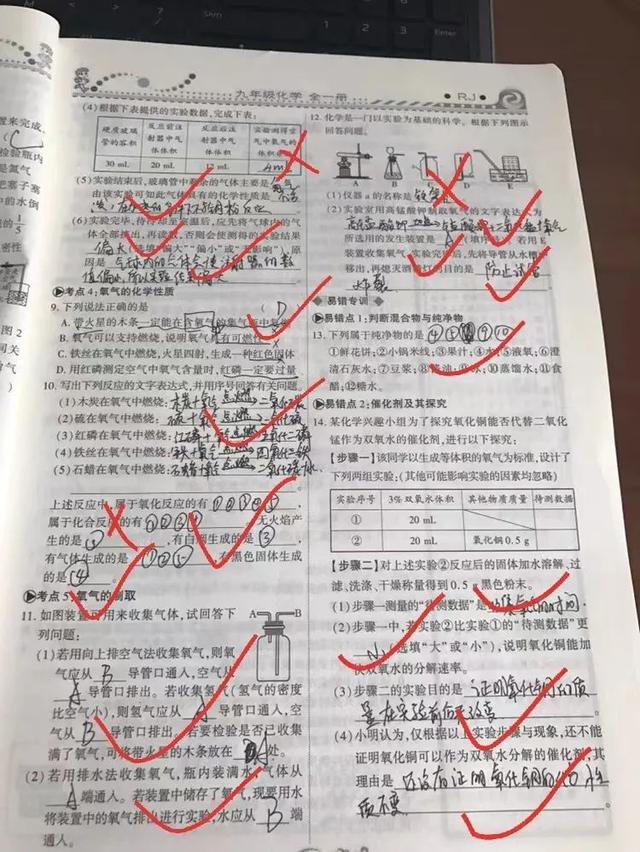 九年级化学 全一册
RJ
(4)根据下表提供的实验数据,完成下表:
硬质玻璃管的容积 反应前注射器中气体体积 反应后注射器中气体体积
30 mL 20 mL 12 mL
(5)实验结束后,玻璃管中剩余的气体主要是
由该实验可知此气体具有的化学性质是
(6)实验完毕,待冷却至室温后,应先将气球内的气
体全部挤出,再读数,否则会使测得的实验结果
偏大(选填"偏大""偏小"或"无影响"),原
因是
考点4:氧气的化学性质
9. 下列说法正确的是 (D
A. 带火星的木条一定能在含氧气的集气瓶中复燃
B. 氧气可以支持燃烧,说明氧气具有可燃性
C. 铁丝在氧气中燃烧,火星四射,生成一种红色固体
D. 用红磷测定空气中氧气含量时,红磷一定要过量
10. 写出下列反应的文字表达式,并用序号回答有关问题。
(1)木炭在氧气中燃烧: 木炭+氧气 点燃 二氧化碳
(2)硫在氧气中燃烧: 硫+氧气 点燃 二氧化硫
(3)红磷在氧气中燃烧: 红磷+氧气 点燃
(4)铁丝在氧气中燃烧: 铁+氧气 点燃 四氧化三铁
(5)石蜡在氧气中燃烧: 石蜡+氧气 点燃
上述反应中,属于氧化反应的有①②③④⑤,
属于化合反应的有①②③④ 无火焰产
生的是 ,有白烟生成的是③,
有气体生成的是①②⑤,有黑色固体生成
的是④。
考点5:氧气的制取
11. 如图装置可用来收集气体,试回答下
列问题:
A B
(1)若用向上排空气法收集氧气,则氧
气应从 B 导管口通入,空气从
A 导管口排出。若收集氢气(氢气的密度
比空气小),则氢气应从 A 导管口通入,空
气从 B 导管口排出。若要检验是否已收集
满了氧气,可将带火星的木条放在 A 处。
(2)若用排水法收集氧气,瓶内装满水,气体从
A 端通入。若装置中储存了氧气,现要用水
将装置中的氧气排出进行实验,水应从 B 端
通入。
12. 化学是一门以实验为基础的科学。根据下列图示
回答问题。
A B C D E
(1)仪器a的名称是
(2)实验室用高锰酸钾制取氧气的文字表达式为
所选用的发生装置是 A (填序号)。若用E
装置收集氧气,实验完毕后,先将导管从水槽中
移出,再熄灭酒精灯的目的是 防止试管
炸裂
易错专训
易错点1:判断混合物与纯净物
13. 下列属于纯净物的是
①鲜花饼;②小锅米线;③果汁;④水;⑤液氧;⑥澄
清石灰水;⑦豆浆;⑧酱油;⑨冰;⑩蒸馏水;⑪食
醋;⑫糖水。
易错点2:催化剂及其探究
14. 某化学兴趣小组为了探究氧化铜能否代替二氧化
锰作为双氧水的催化剂,进行以下探究:
【步骤一】该同学以生成等体积的氧气为标准,设计了
下列两组实验:(其他可能影响实验的因素均忽略)
实验序号 3%双氧水体积 其他物质质量 待测数据
① 20 mL
② 20 mL 氧化铜0.5 g
【步骤二】对上述实验②反应后的固体加水溶解、过
滤、洗涤、干燥称量得到0.5 g黑色粉末。
(1)步骤一测量的"待测数据"是
(2)步骤一中,若实验②比实验①的"待测数据"更
小(选填"大"或"小"),说明氧化铜能加
快双氧水的分解速率。
(3)步骤二的实验目的是 证明氧化铜的质
量在实验前后不改变
(4)小明认为,仅根据以上实验步骤与现象,还不能
证明氧化铜可以作为双氧水分解的催化剂,其
理由是 还没有证明氧化铜的化学性
质不变